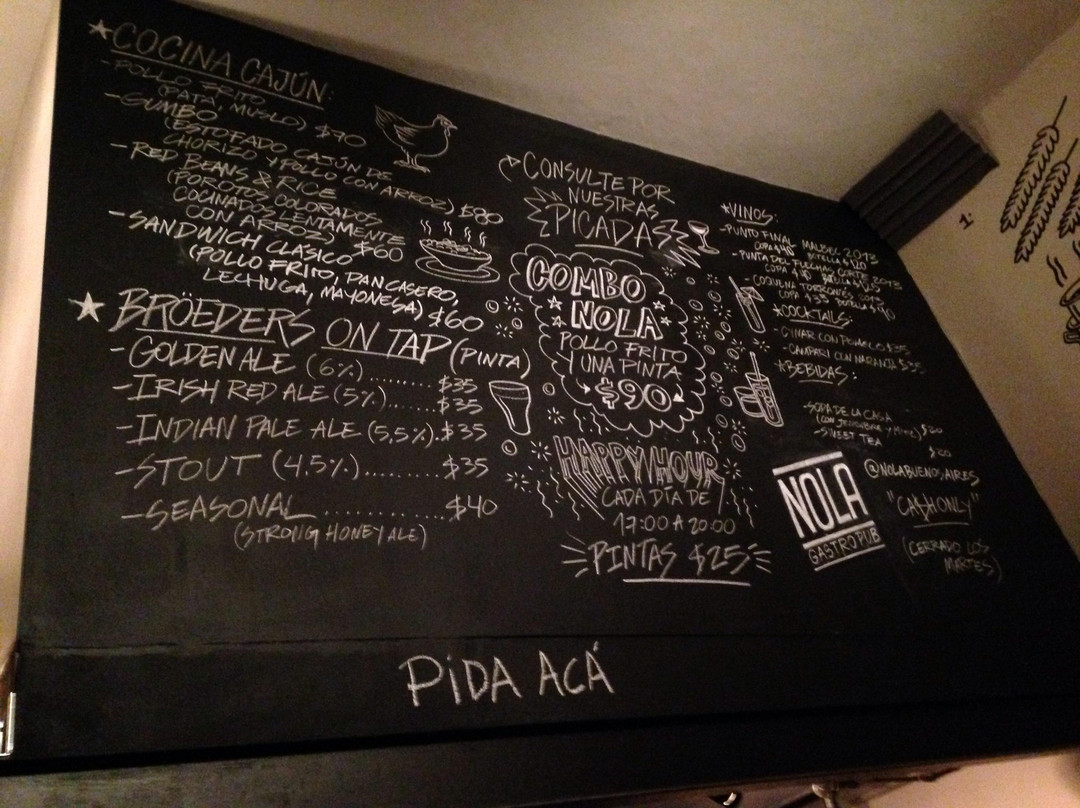 ★COCINA CAJÚN:
-POLLO FRITO
(PATA, MUSLO) $70
-GUMBO
(ESTOFADO CAJÚN DE
CHORIZO Y POLLO CON ARROZ) $80
-RED BEANS & RICE
(POROTOS COLORADOS
COCINADOS LENTAMENTE
CON ARROZ) $60
-SANDWICH CLÁSICO
(POLLO FRITO, PAN CASERO,
LECHUGA, MAYONESA) $60
★BRÖEDERS ON TAP (PINTA)
-GOLDEN ALE (6%)........$35
-IRISH RED ALE (5%)......$35
-INDIAN PALE ALE (5,5%).$35
-STOUT (4.5%)..........$35
-SEASONAL ............$40
(STRONG HONEY ALE)
CONSULTE POR
NUESTRAS
PICADAS
COMBO
NOLA
POLLO FRITO
Y UNA PINTA
$90
HAPPY HOUR
CADA DÍA DE
17:00 A 20:00
PINTAS $25
*VINOS:
-PUNTO FINAL MALBEC 2013
COPA $40 BOTELLA $120
-PUNTA DEL FLECHAS CORTE 2013
COPA
-COQUENA TORRONTÉS 2013
COPA $35 BOTELLA $90
*COCKTAILS:
-CYNAR CON POMELO $35
-CAMPARI CON NARANJA $35
*BEBIDAS:
-SODA DE LA CASA
(CON JENGIBRE Y MIEL) $20
-SWEET TEA
$20
NOLA
GASTROPUB
@NOLABUENOSAIRES
"CA$H ONLY"
(CERRADO LOS
MARTES)
PIDA ACÁ
1: